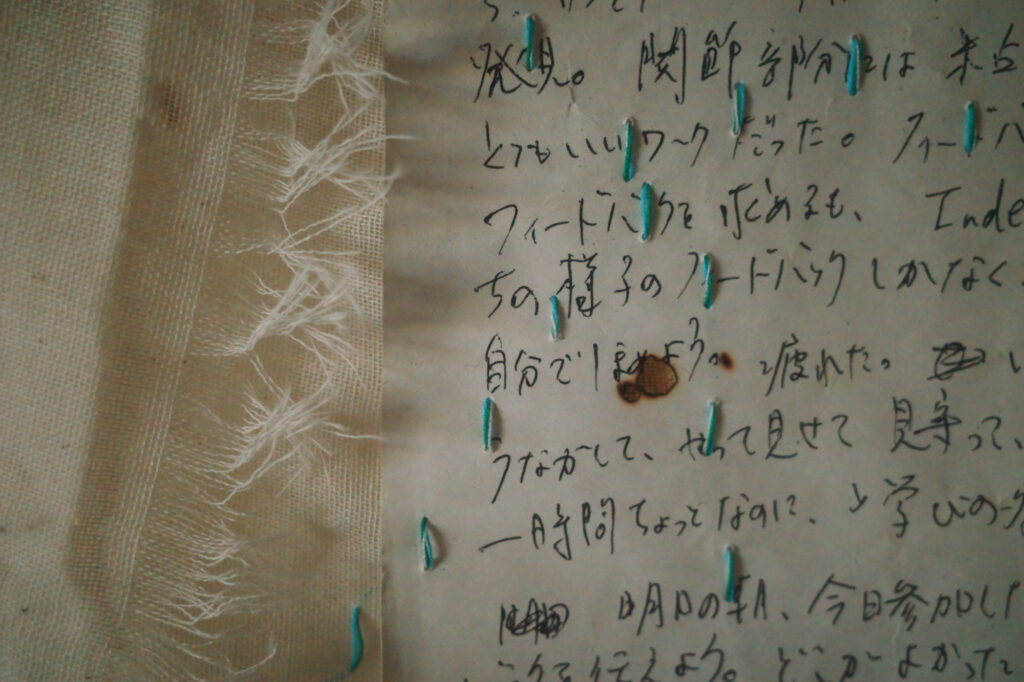 発見。関節部分には 粘
とてもいいワークだった。フィードバ
フィードバックを求めるも、Inde
ちの様子のフィードバックしかなく、
自分でほめよう。疲れた。い
うながして、やって見せて 見守って、
一時間ちょっとなのに、学びの
明日の朝、今日参加した
を伝えよう。どこがよかった